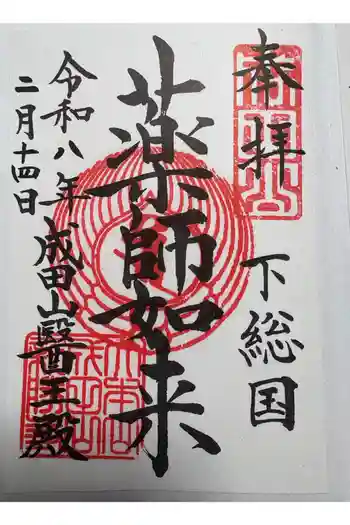 奉拝
下総国
薬師如来
令和八年 成田山醫王殿
二月十四日